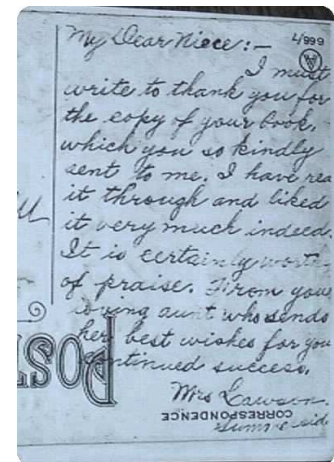 My Dear Niece:-
I must
write to thank you for
the copy of your book,
which you so kindly
sent to me. I have rea
it through and liked
it very much indeed.
It is certainly worth
of praise. From you
loving aunt who sends
her best wishes for you
continued success.
Mrs Lawson.
Summerside
CORRESPONDENCE
POST